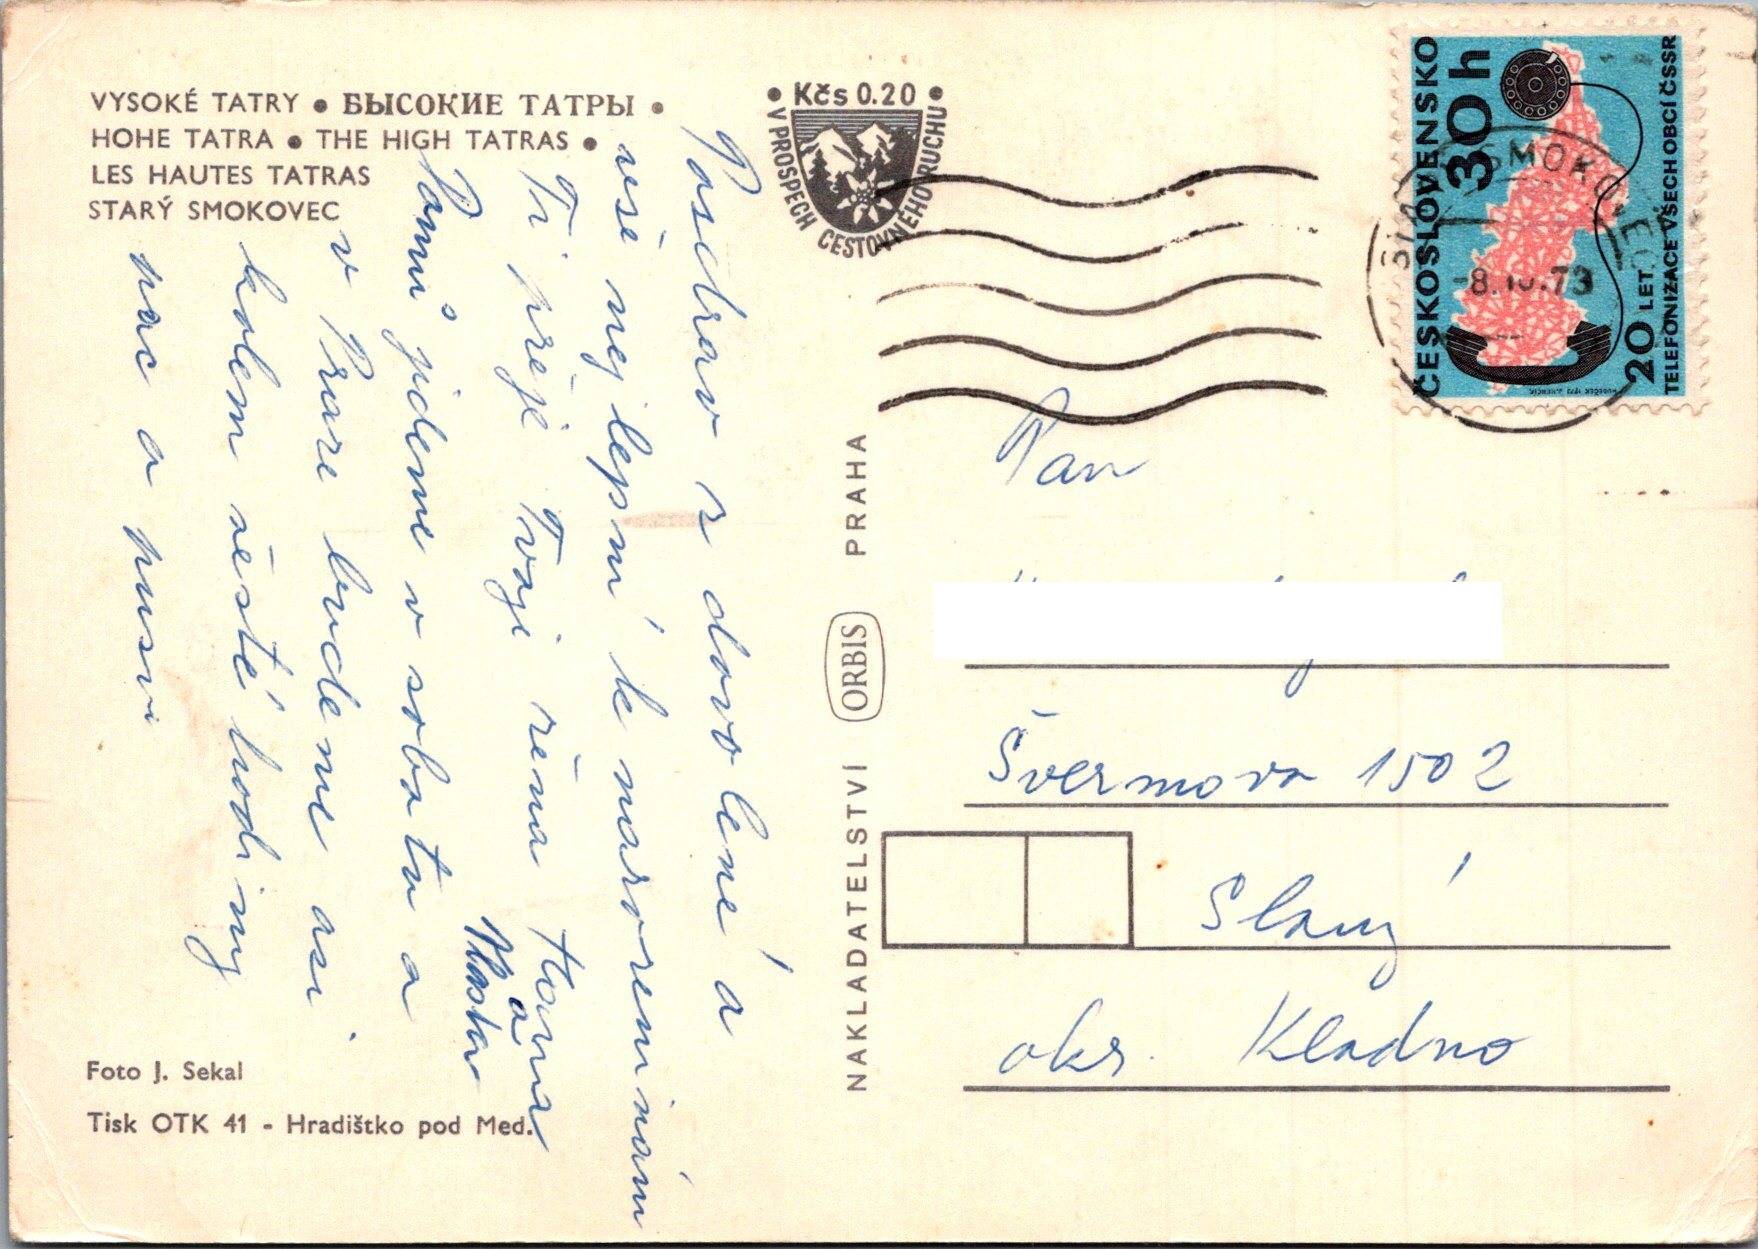 VYSOKÉ TATRY • ВЫСОКИЕ ТАТРЫ •
HOHE TATRA • THE HIGH TATRAS •
LES HAUTES TATRAS
STARÝ SMOKOVEC
• Kčs 0.20 •
V PROSPĚCH CESTOVNÉHO RUCHU
ČESKOSLOVENSKO
30h
20 LET
TELEFONIZACE VŠECH OBCÍ ČSSR
-8.10.73
Pozdrav z dovolené a
vše nejlepší k narozeninám
Ti přeje Tvoje žena Hana
a Vlasta
Domů jedeme v sobotu a
v Praze budeme asi
kolem šesté hodiny
nac a pusu
Foto J. Sekal
Tisk OTK 41 - Hradištko pod Med.
NAKLADATELSTVÍ ORBIS PRAHA
Pan
Švermova 1502
Slaný
okr. Kladno